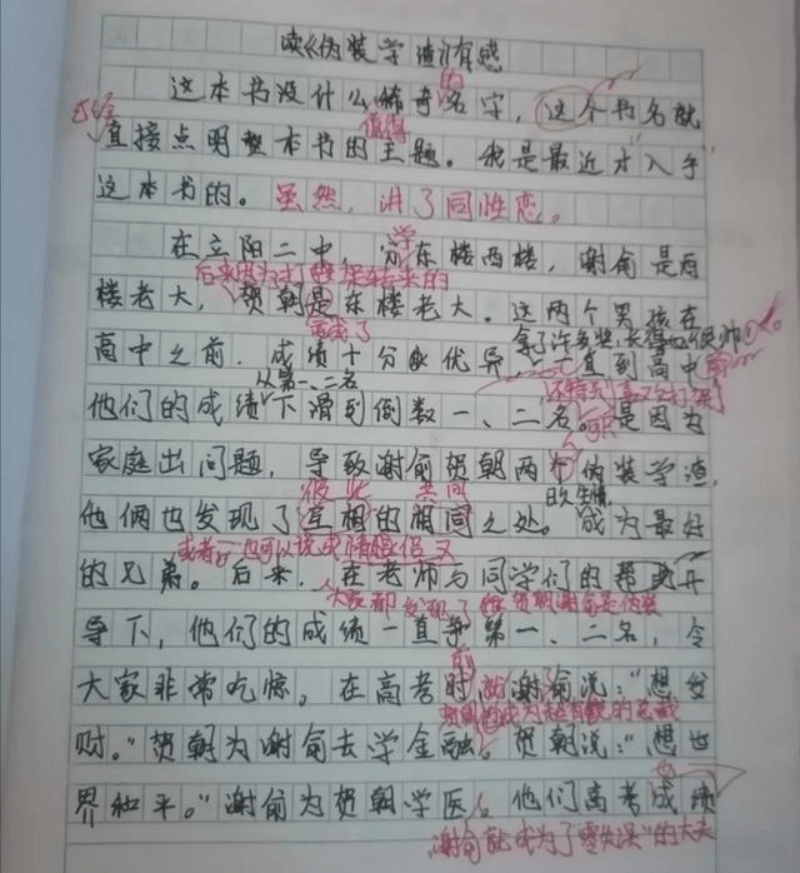 读《伪装学渣》有感
的
这本书没什么稀奇名字，这个书名就
值得
直接点明整本书的主题。我是最近才"入手"
这本书的。虽然，讲了同性恋。
学
在立阳二中，分东楼西楼，谢俞是西
后来因为打架转来的
楼老大，贺朝是东楼老大。这两个男孩在
拿了许多奖，长得也很帅
高中之前，成绩十分优异，一直到高中
从第一、二名
他们的成绩下滑到倒数一、二名。是因为
家庭出问题，导致谢俞贺朝两个伪装学渣，
彼此 共同
他俩也发现了互相的相同之处。成为最好
或者 也可以说成情侣
的兄弟。后来，在老师与同学们的帮助开
大家都发现了 贺朝谢俞是伪装
导下，他们的成绩一直争第一、二名，令
前
大家非常吃惊。在高考时，谢俞说："想发
财。"贺朝为谢俞去学金融。贺朝说："想世
界和平。"谢俞为贺朝学医。他们高考成绩
谢俞就成为了"零失误"的大夫